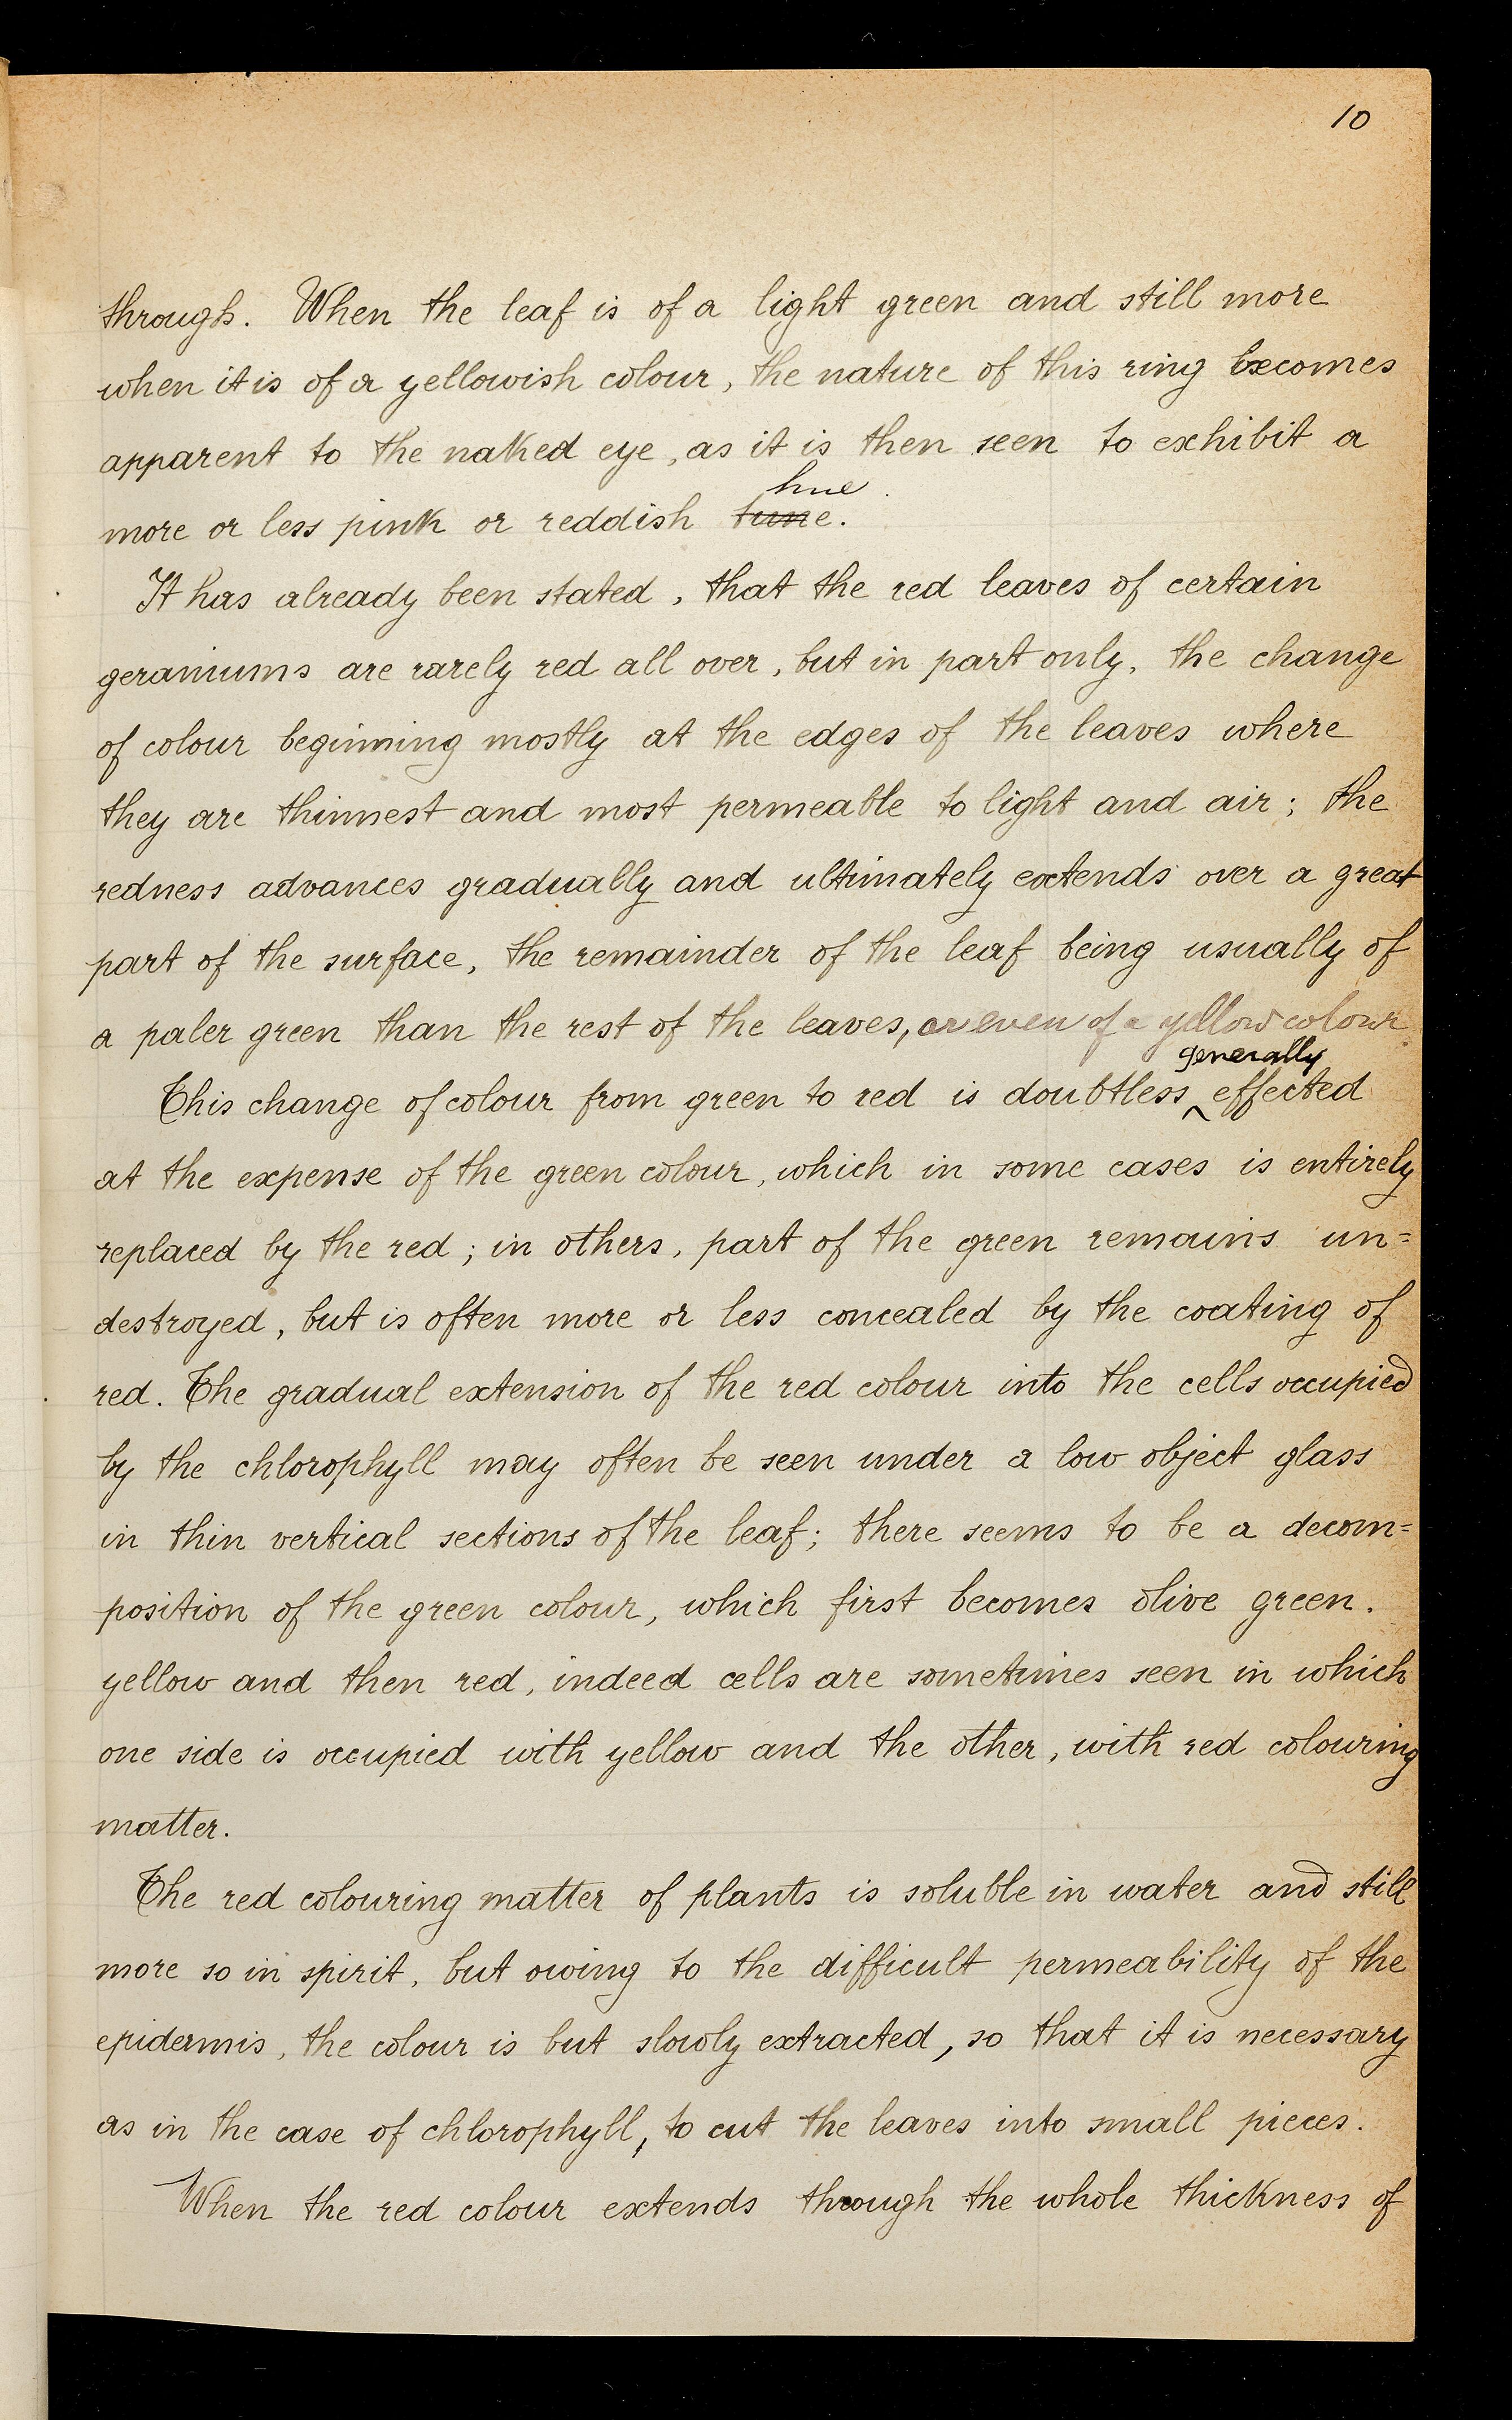 10
through. When the leaf is of a light green and still more
when it is of a yellowish colour, the nature of this ring becomes
apparent to the naked eye, as it is then seen to exhibit a
hue
more or less pink or reddish tune.
It has already been stated, that the red leaves of certain
geraniums are rarely red all over, but in part only, the change
of colour beginning mostly at the edges of the leaves where
they are thinnest and most permeable to light and air; the
redness advances gradually and ultimately extends over a great
part of the surface, the remainder of the leaf being usually of
a paler green than the rest of the leaves, or even of a yellow colour.
generally
This change of colour from green to red is doubtless ‸ effected
at the expense of the green colour, which in some cases is entirely
replaced by the red; in others, part of the green remains un=
destroyed, but is often more or less concealed by the coating of
red. The gradual extension of the red colour into the cells occupied
by the chlorophyll may often be seen under a low object glass
in thin vertical sections of the leaf; there seems to be a decom=
position of the green colour, which first becomes olive green.
yellow and then red, indeed cells are sometimes seen in which
one side is occupied with yellow and the other, with red colouring
matter.
The red colouring matter of plants is soluble in water and still
more so in spirit, but owing to the difficult permeability of the
epidermis, the colour is but slowly extracted, so that it is necessary
as in the case of chlorophyll, to cut the leaves into small pieces.
When the red colour extends through the whole thickness of